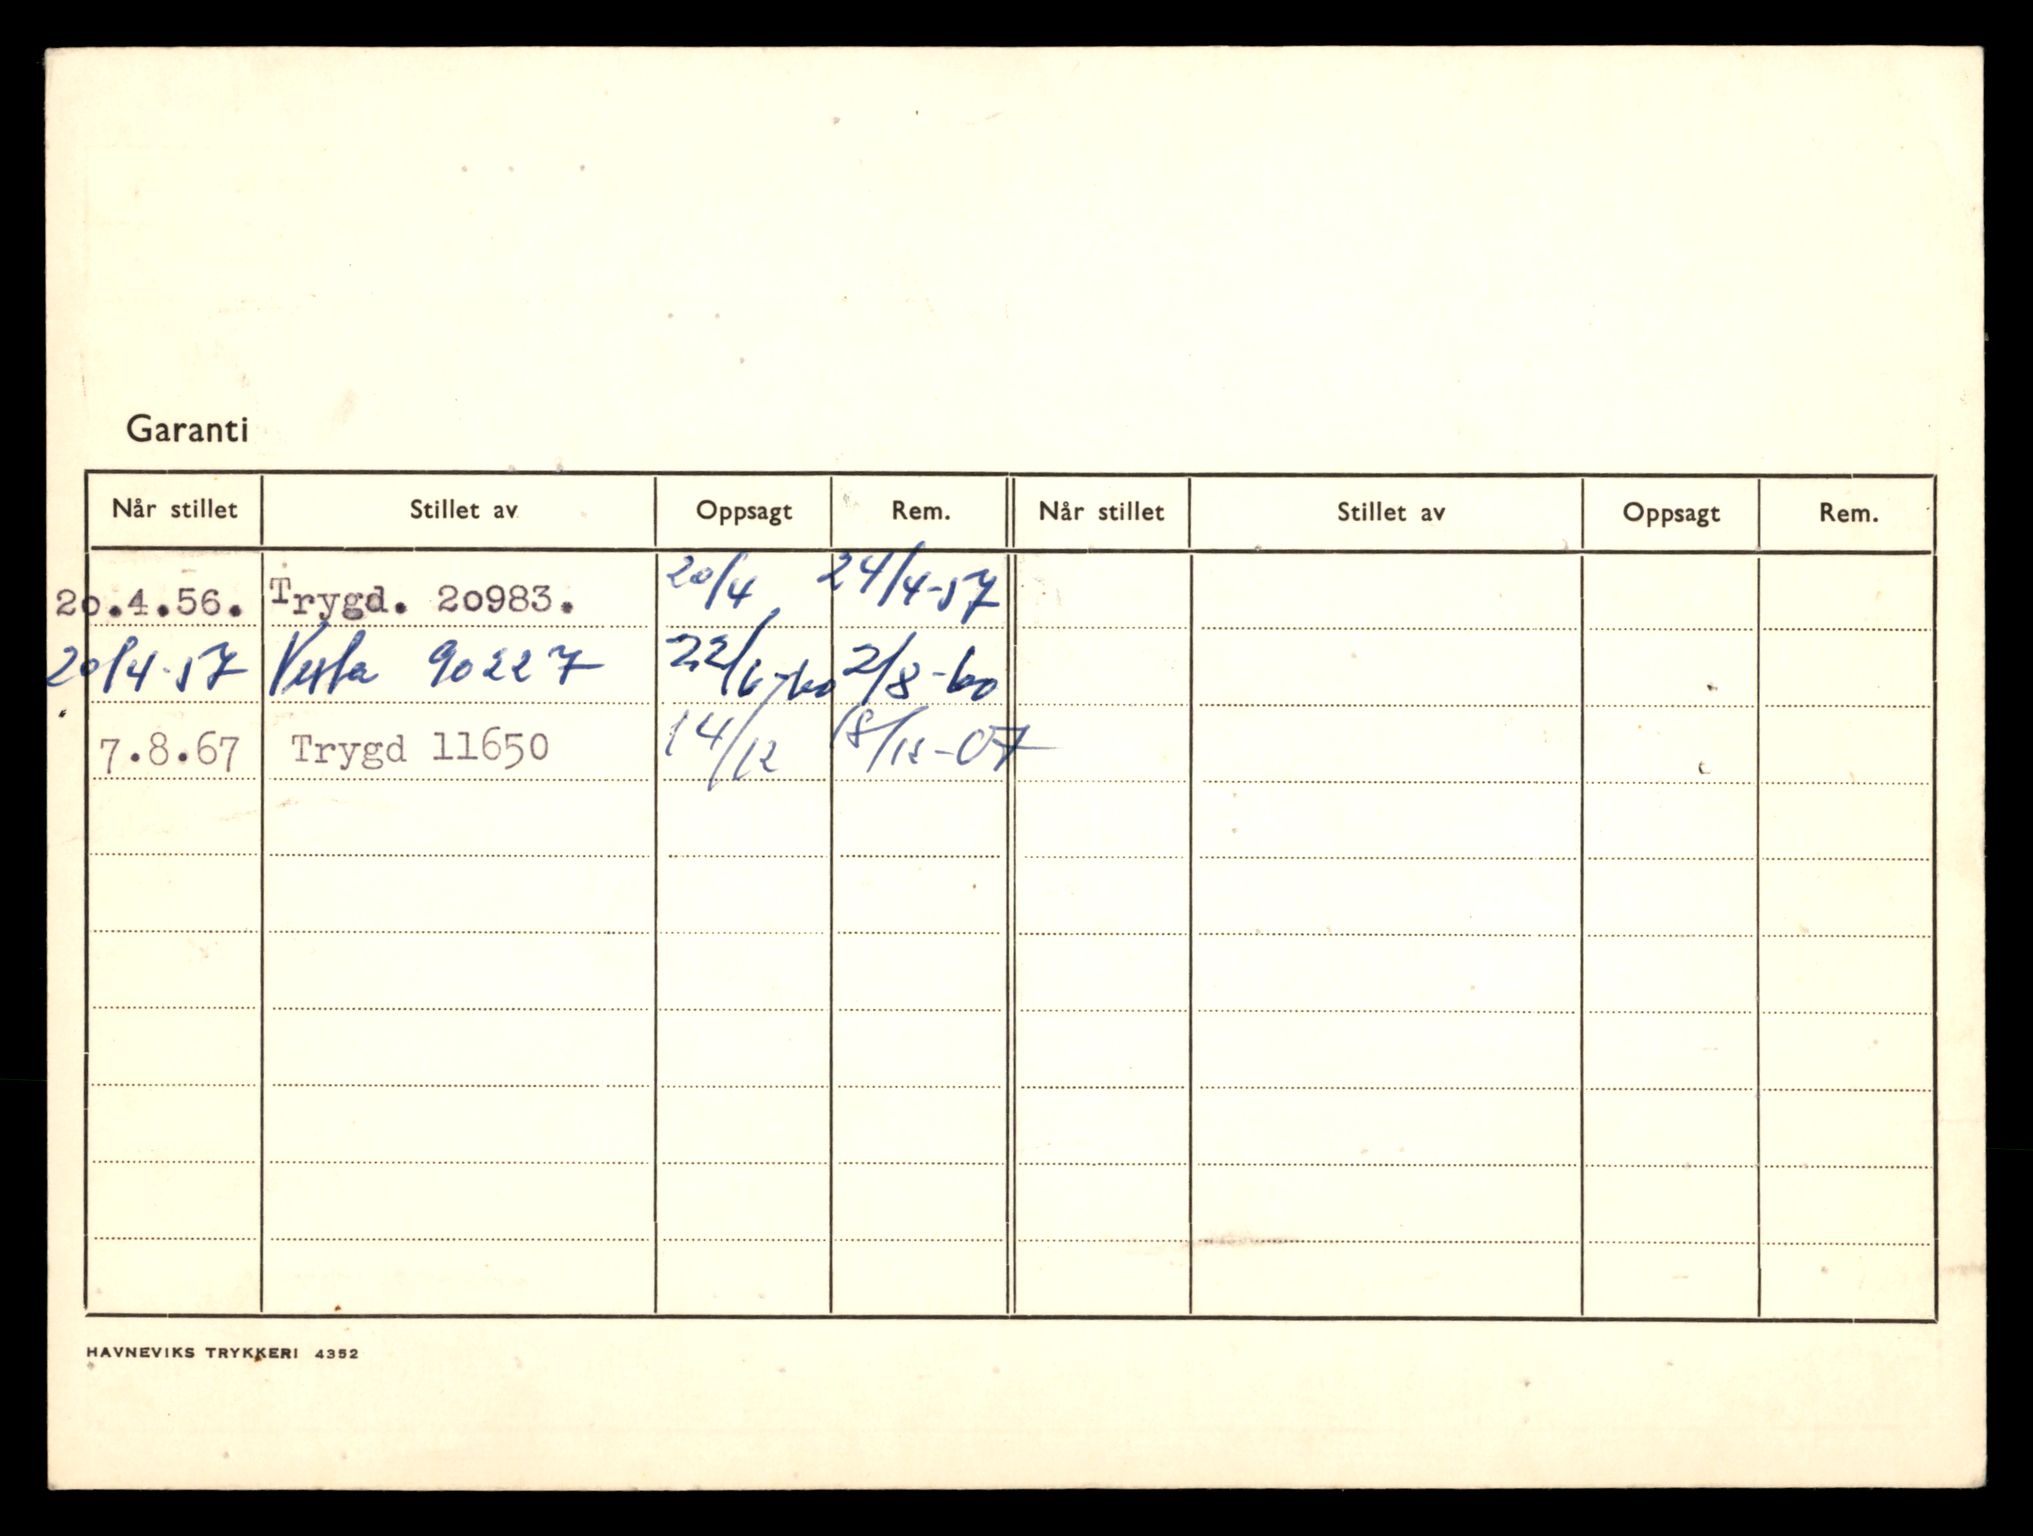 Garanti
Når stillet Stillet av Oppsagt Rem. Når stillet Stillet av Oppsagt Rem.
20.4.56. Trygd. 20983. 20/4 24/4-57
20/4-57 Vesta 90227 22/6-60 2/8-60
7.8.67 Trygd 11650 14/12 18/12-67
HAVNEVIKS TRYKKERI 4352